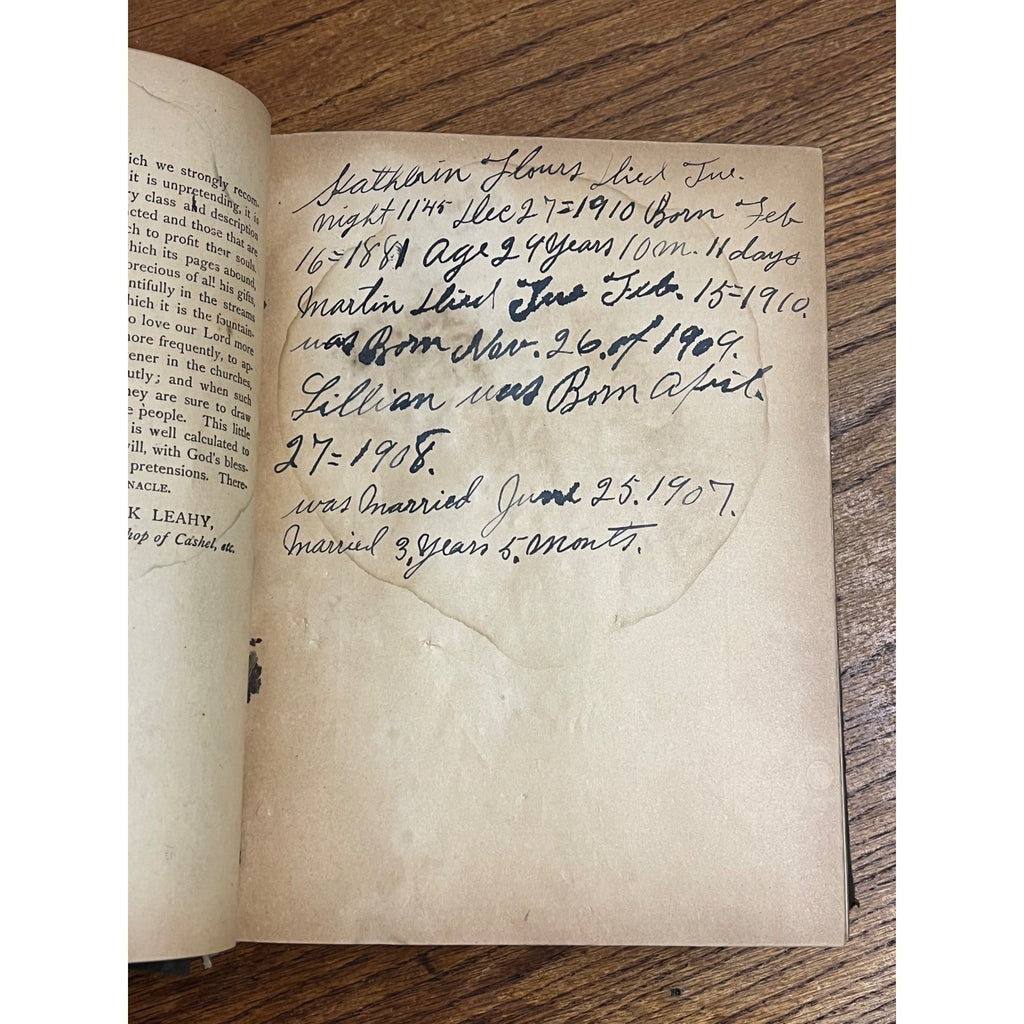 ich we strongly recom-
it is unpretending, it is
y class and description
cted and those that are
ch to profit their souls.
hich its pages abound,
precious of all his gifts,
ntifully in the streams
hich it is the fountain-
o love our Lord more
nore frequently, to ap-
ener in the churches,
utly; and when such
hey are sure to draw
e people. This little
is well calculated to
vill, with God's bless-
pretensions. There-
NACLE.
K LEAHY,
hop of Cashel, etc.
Kathlein Flours Died Tue.
night 11 45 Dec 27=1910 Born Feb
16=1881 Age 29 Years 10 m. 11 days
Martin Died Tue Feb. 15=1910.
was Born Nov. 26. of 1909.
Lillian was Born April.
27=1908.
was Married June 25. 1907.
Married 3, Years 5, Monts.